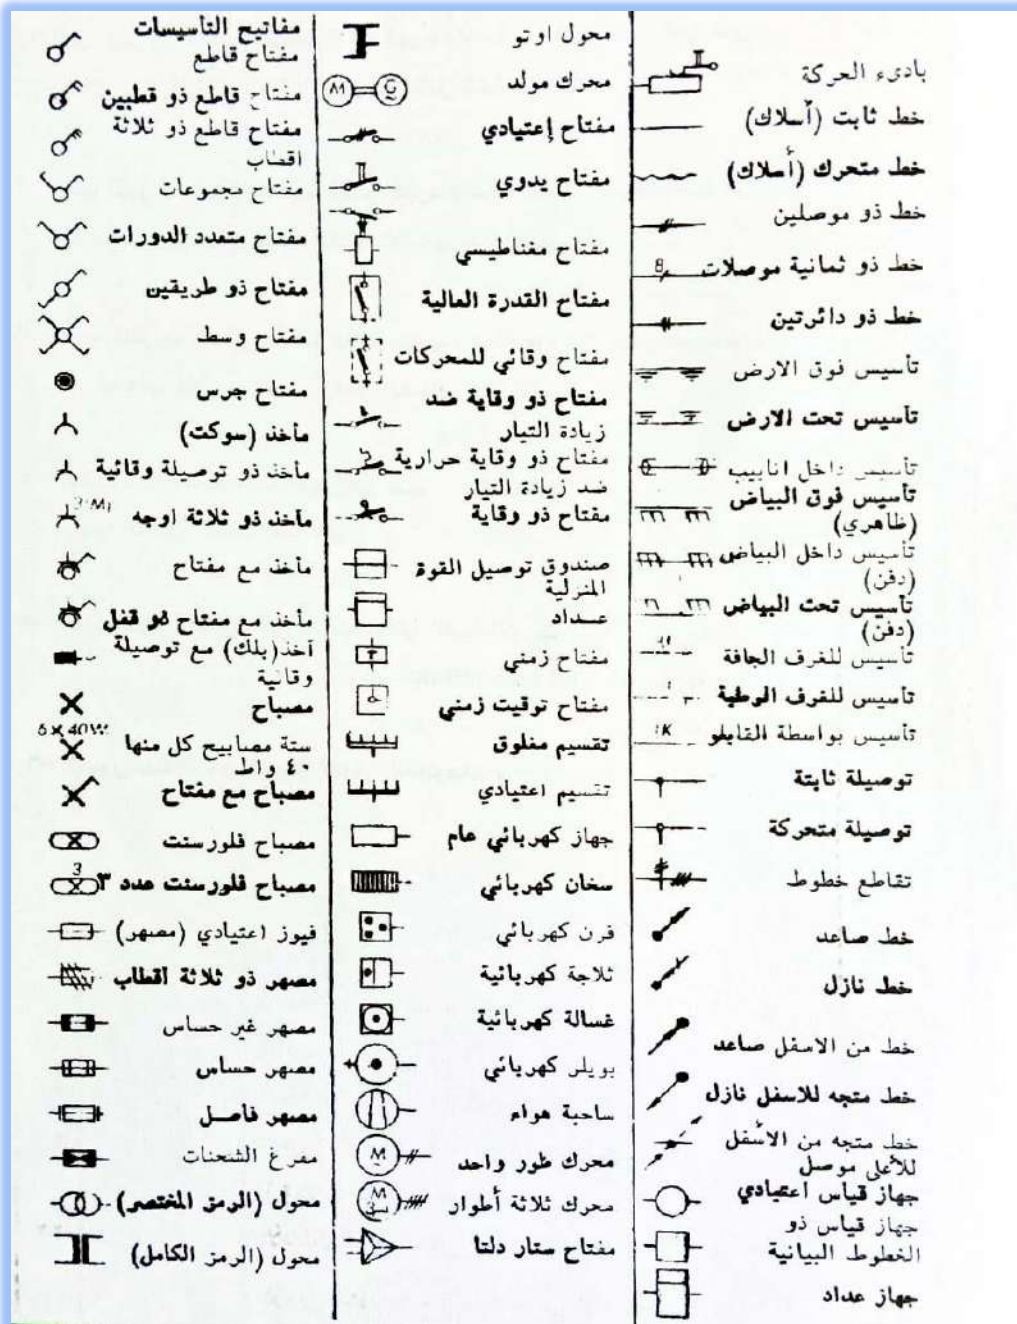 بادىء الحركة
خط ثابت (أسلاك)
خط متحرك (أسلاك)
خط ذو موصلين
8
خط ذو ثمانية موصلات
خط ذو دائرتين
تأسيس فوق الارض
تأسيس تحت الارض
تأسيس داخل انابيب
تأسيس فوق البياض
(ظاهري)
تأسيس داخل البياض
(دفن)
تأسيس تحت البياض
(دفن)
تأسيس للغرف الجافة
تأسيس للغرف الرطبة
تأسيس بواسطة القابلو
توصيلة ثابتة
توصيلة متحركة
تقاطع خطوط
خط صاعد
خط نازل
خط من الاسفل صاعد
خط متجه للاسفل نازل
خط متجه من الاسفل
للأعلى موصل
جهاز قياس اعتيادي
جهاز قياس ذو
الخطوط البيانية
جهاز عداد
محول اوتو
M G
محرك مولد
مفتاح إعتيادي
مفتاح يدوي
مفتاح مغناطيسي
مفتاح القدرة العالية
مفتاح وقائي للمحركات
مفتاح ذو وقاية ضد
زيادة التيار
مفتاح ذو وقاية حرارية
ضد زيادة التيار
مفتاح ذو وقاية
صندوق توصيل القوة
المنزلية
عداد
مفتاح زمني
مفتاح توقيت زمني
تقسيم مغلوق
تقسيم اعتيادي
جهاز كهربائي عام
سخان كهربائي
فرن كهربائي
ثلاجة كهربائية
غسالة كهربائية
بويلر كهربائي
ساحبة هواء
M
محرك طور واحد
M
3
محرك ثلاثة أطوار
مفتاح ستار دلتا
مفاتيح التأسيسات
مفتاح قاطع
مفتاح قاطع ذو قطبين
مفتاح قاطع ذو ثلاثة
اقطاب
مفتاح مجموعات
مفتاح متعدد الدورات
مفتاح ذو طريقين
مفتاح وسط
مفتاح جرس
مأخذ (سوكت)
مأخذ ذو توصيلة وقائية
مأخذ ذو ثلاثة اوجه
مأخذ مع مفتاح
مأخذ مع مفتاح ذو قفل
اخذ(بلك) مع توصيلة
وقائية
مصباح
6x40W
ستة مصابيح كل منها
٤٠ واط
مصباح مع مفتاح
مصباح فلورسنت
3
مصباح فلورسنت عدد ٣
فيوز اعتيادي (مصهر)
مصهر ذو ثلاثة اقطاب
مصهر غير حساس
مصهر حساس
مصهر فاصل
مفرغ الشحنات
محول (الرمز المختصر)
محول (الرمز الكامل)